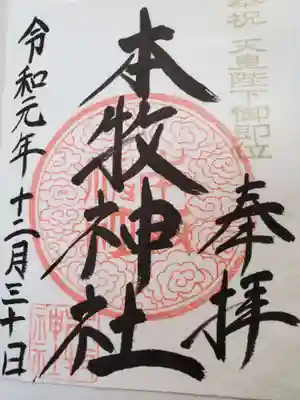 奉祝 天皇陛下御即位
奉拝
本牧神社
令和元年十二月三十日